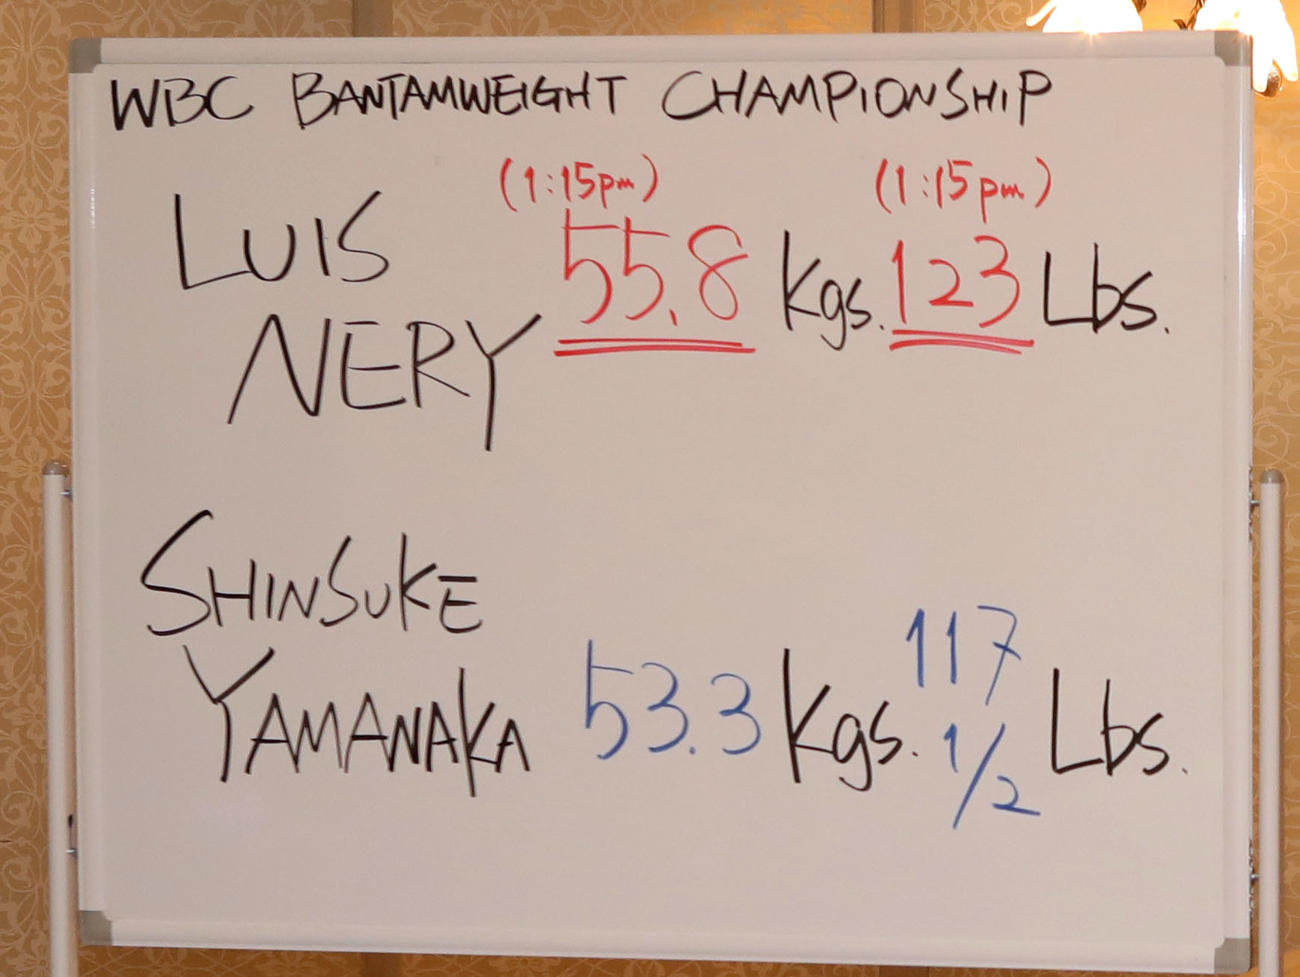 WBC BANTAMWEIGHT CHAMPIONSHIP
(1:15pm) (1:15pm)
LUIS
NERY 55.8 kgs. 123 Lbs.
SHINSUKE
YAMANAKA 53.3 kgs. 117 1/2 Lbs.